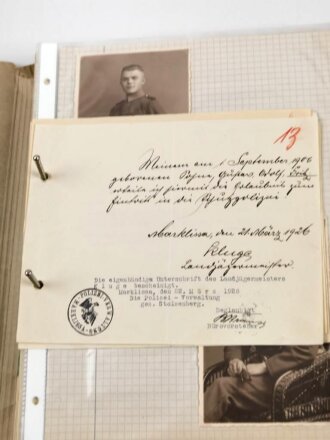 13
Meinem am 1 September 1906
geborenen Sohne, Gustav Adolf, Fritz
erteile ich hiermit die Erlaubnis zum
Eintritt in die Schutzpolizei
Marklissa, den 21 März 1926
Kluge
Landjägermeister.
Die eigenhändige Unterschrift des Landjägermeisters
K l u g e bescheinigt.
Marklissa, den 22. M ä r z 1926
Die Polizei - Verwaltung
gez. Stolzenberg.
Beglaubigt
Bürovorsteher